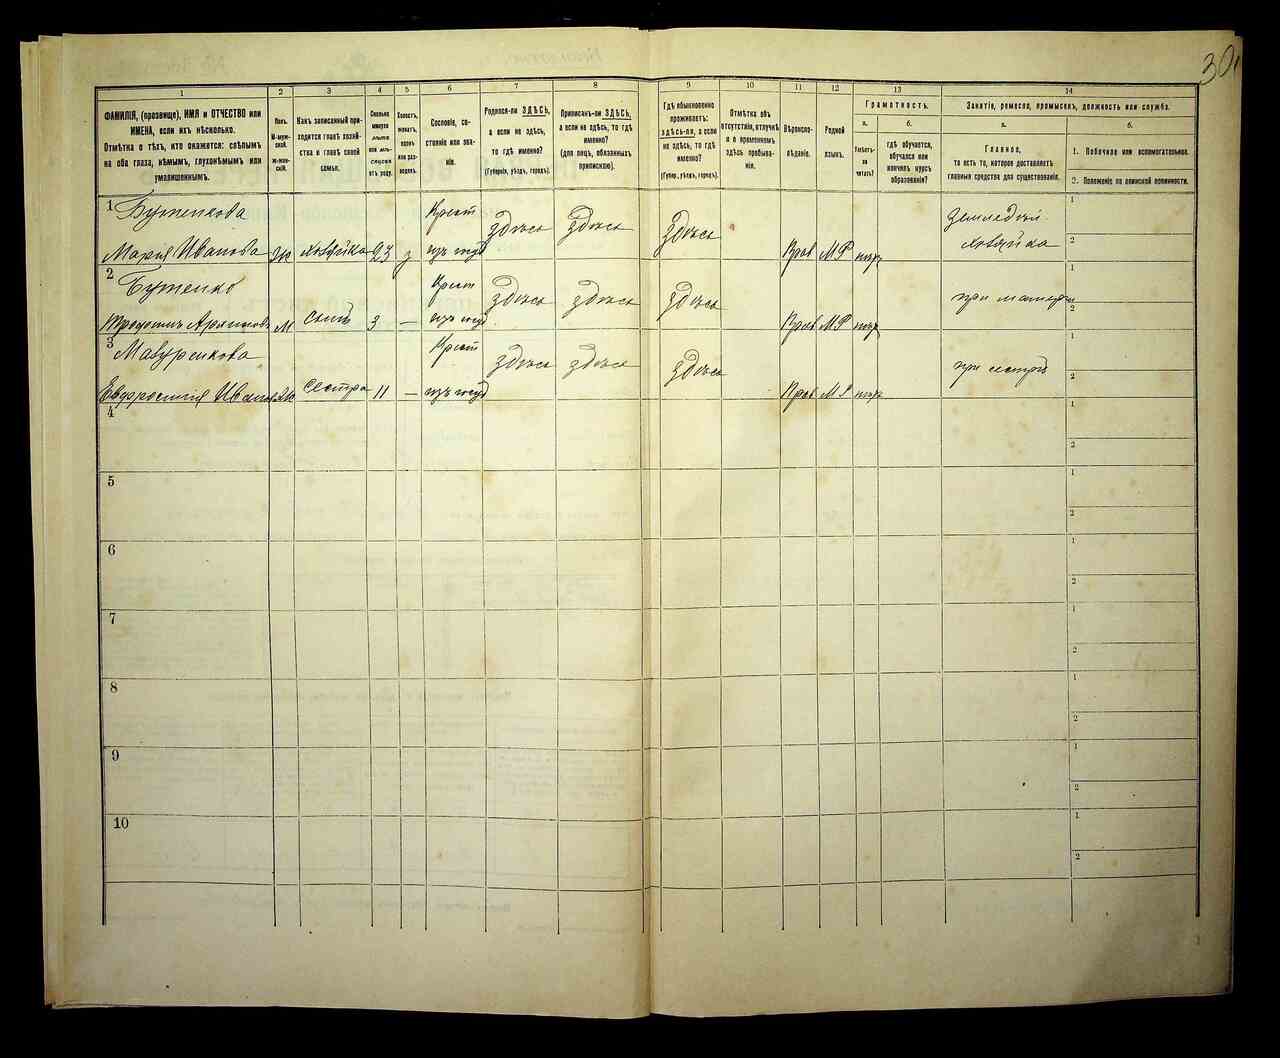 30
1 2 3 4 5 6 7 8 9 10 11 12 13 14
ФАМИЛІЯ, (прозвище), ИМЯ и ОТЧЕСТВО или
ИМЕНА, если ихъ нѣсколько.
Отмѣтка о тѣхъ, кто окажется: слѣпымъ
на оба глаза, нѣмымъ, глухонѣмымъ или
умалишеннымъ.
Полъ.
М-муж-
ской.
Ж-жен-
скій.
Какъ записанный при-
ходится главѣ хозяй-
ства и главѣ своей
семьи.
Сколько
минуло
лѣтъ
или мѣ-
сяцевъ
отъ роду.
Холостъ,
женатъ,
вдовъ
или раз-
веденъ.
Сословіе, со-
стояніе или зва-
ніе.
Родился-ли ЗДѢСЬ,
а если не здѣсь,
то гдѣ именно?
(Губернія, уѣздъ, городъ).
Приписанъ-ли ЗДѢСЬ,
а если не здѣсь, то гдѣ
именно?
(для лицъ, обязанныхъ
припискою).
Гдѣ обыкновенно
проживаетъ:
ЗДѢСЬ-ЛИ, а если
не здѣсь, то гдѣ
именно?
(Губер., уѣздъ, городъ).
Отмѣтка объ
отсутствіи, отлучкѣ
и о временномъ
здѣсь пребыва-
ніи.
Вѣроиспо-
вѣданіе.
Родной
языкъ.
Грамотность.
а.
Умѣетъ-
ли
читать?
б.
гдѣ обучается,
обучался или
кончилъ курсъ
образованія?
Занятіе, ремесло, промыселъ, должность или служба.
а.
Главное,
то есть то, которое доставляетъ
главныя средства для существованія.
б.
1. Побочное или вспомогательное.
2. Положеніе по воинской повинности.
1 Бутенкова Крест здѣсь здѣсь здѣсь 1
Марія Иванова Ж хозяйка 23 з Прав М Р хозяйка 2
2 Бутенко Крест здѣсь здѣсь здѣсь при матери 1
М Сынъ 3 — Прав М Р 2
3 Мазуренкова Крест здѣсь здѣсь здѣсь при сестрѣ 1
Евфросинія Иванова Ж Сестра 11 — Прав М Р 2
4 1
2
5 1
2
6 1
2
7 1
2
8 1
2
9 1
2
10 1
2